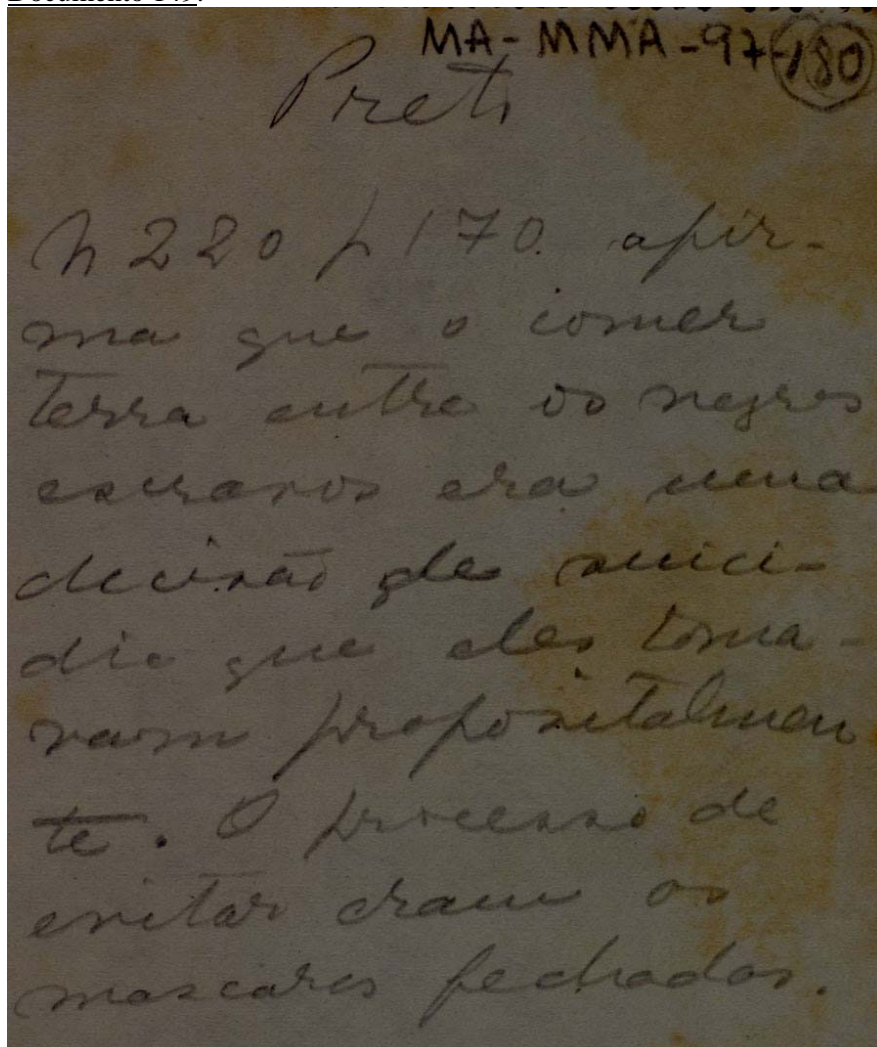 Documento 149:
MA-MMA-97-180
Preto
N 220 p 170. afir-
ma que o comer
terra entre os negros
escravos era uma
decisão de suicí-
dio que eles toma-
vam propositalmen
te. O processo de
evitar eram as
mascaras fechadas.